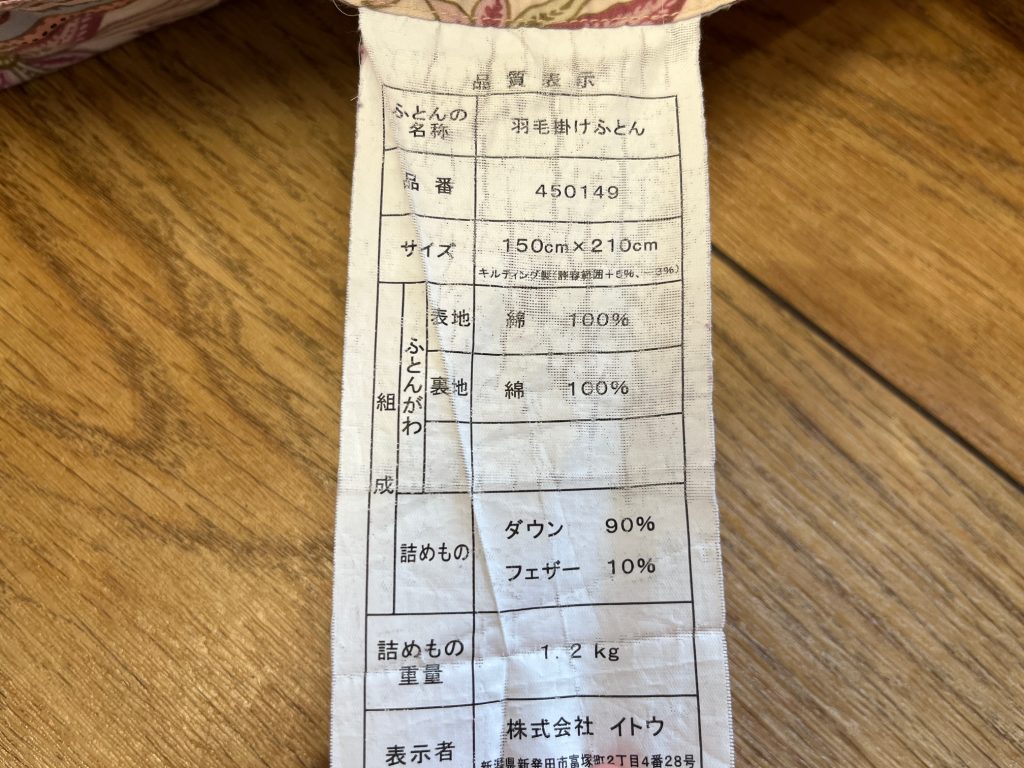 品質表示
ふとんの
名称
羽毛掛けふとん
品番
450149
サイズ
150cm×210cm
キルティング製(許容範囲+5%、-3%)
組成
ふとんがわ
表地 綿 100%
裏地 綿 100%
詰めもの
ダウン 90%
フェザー 10%
詰めもの
重量
1.2kg
表示者
株式会社 イトウ
新潟県新発田市富塚町2丁目4番28号